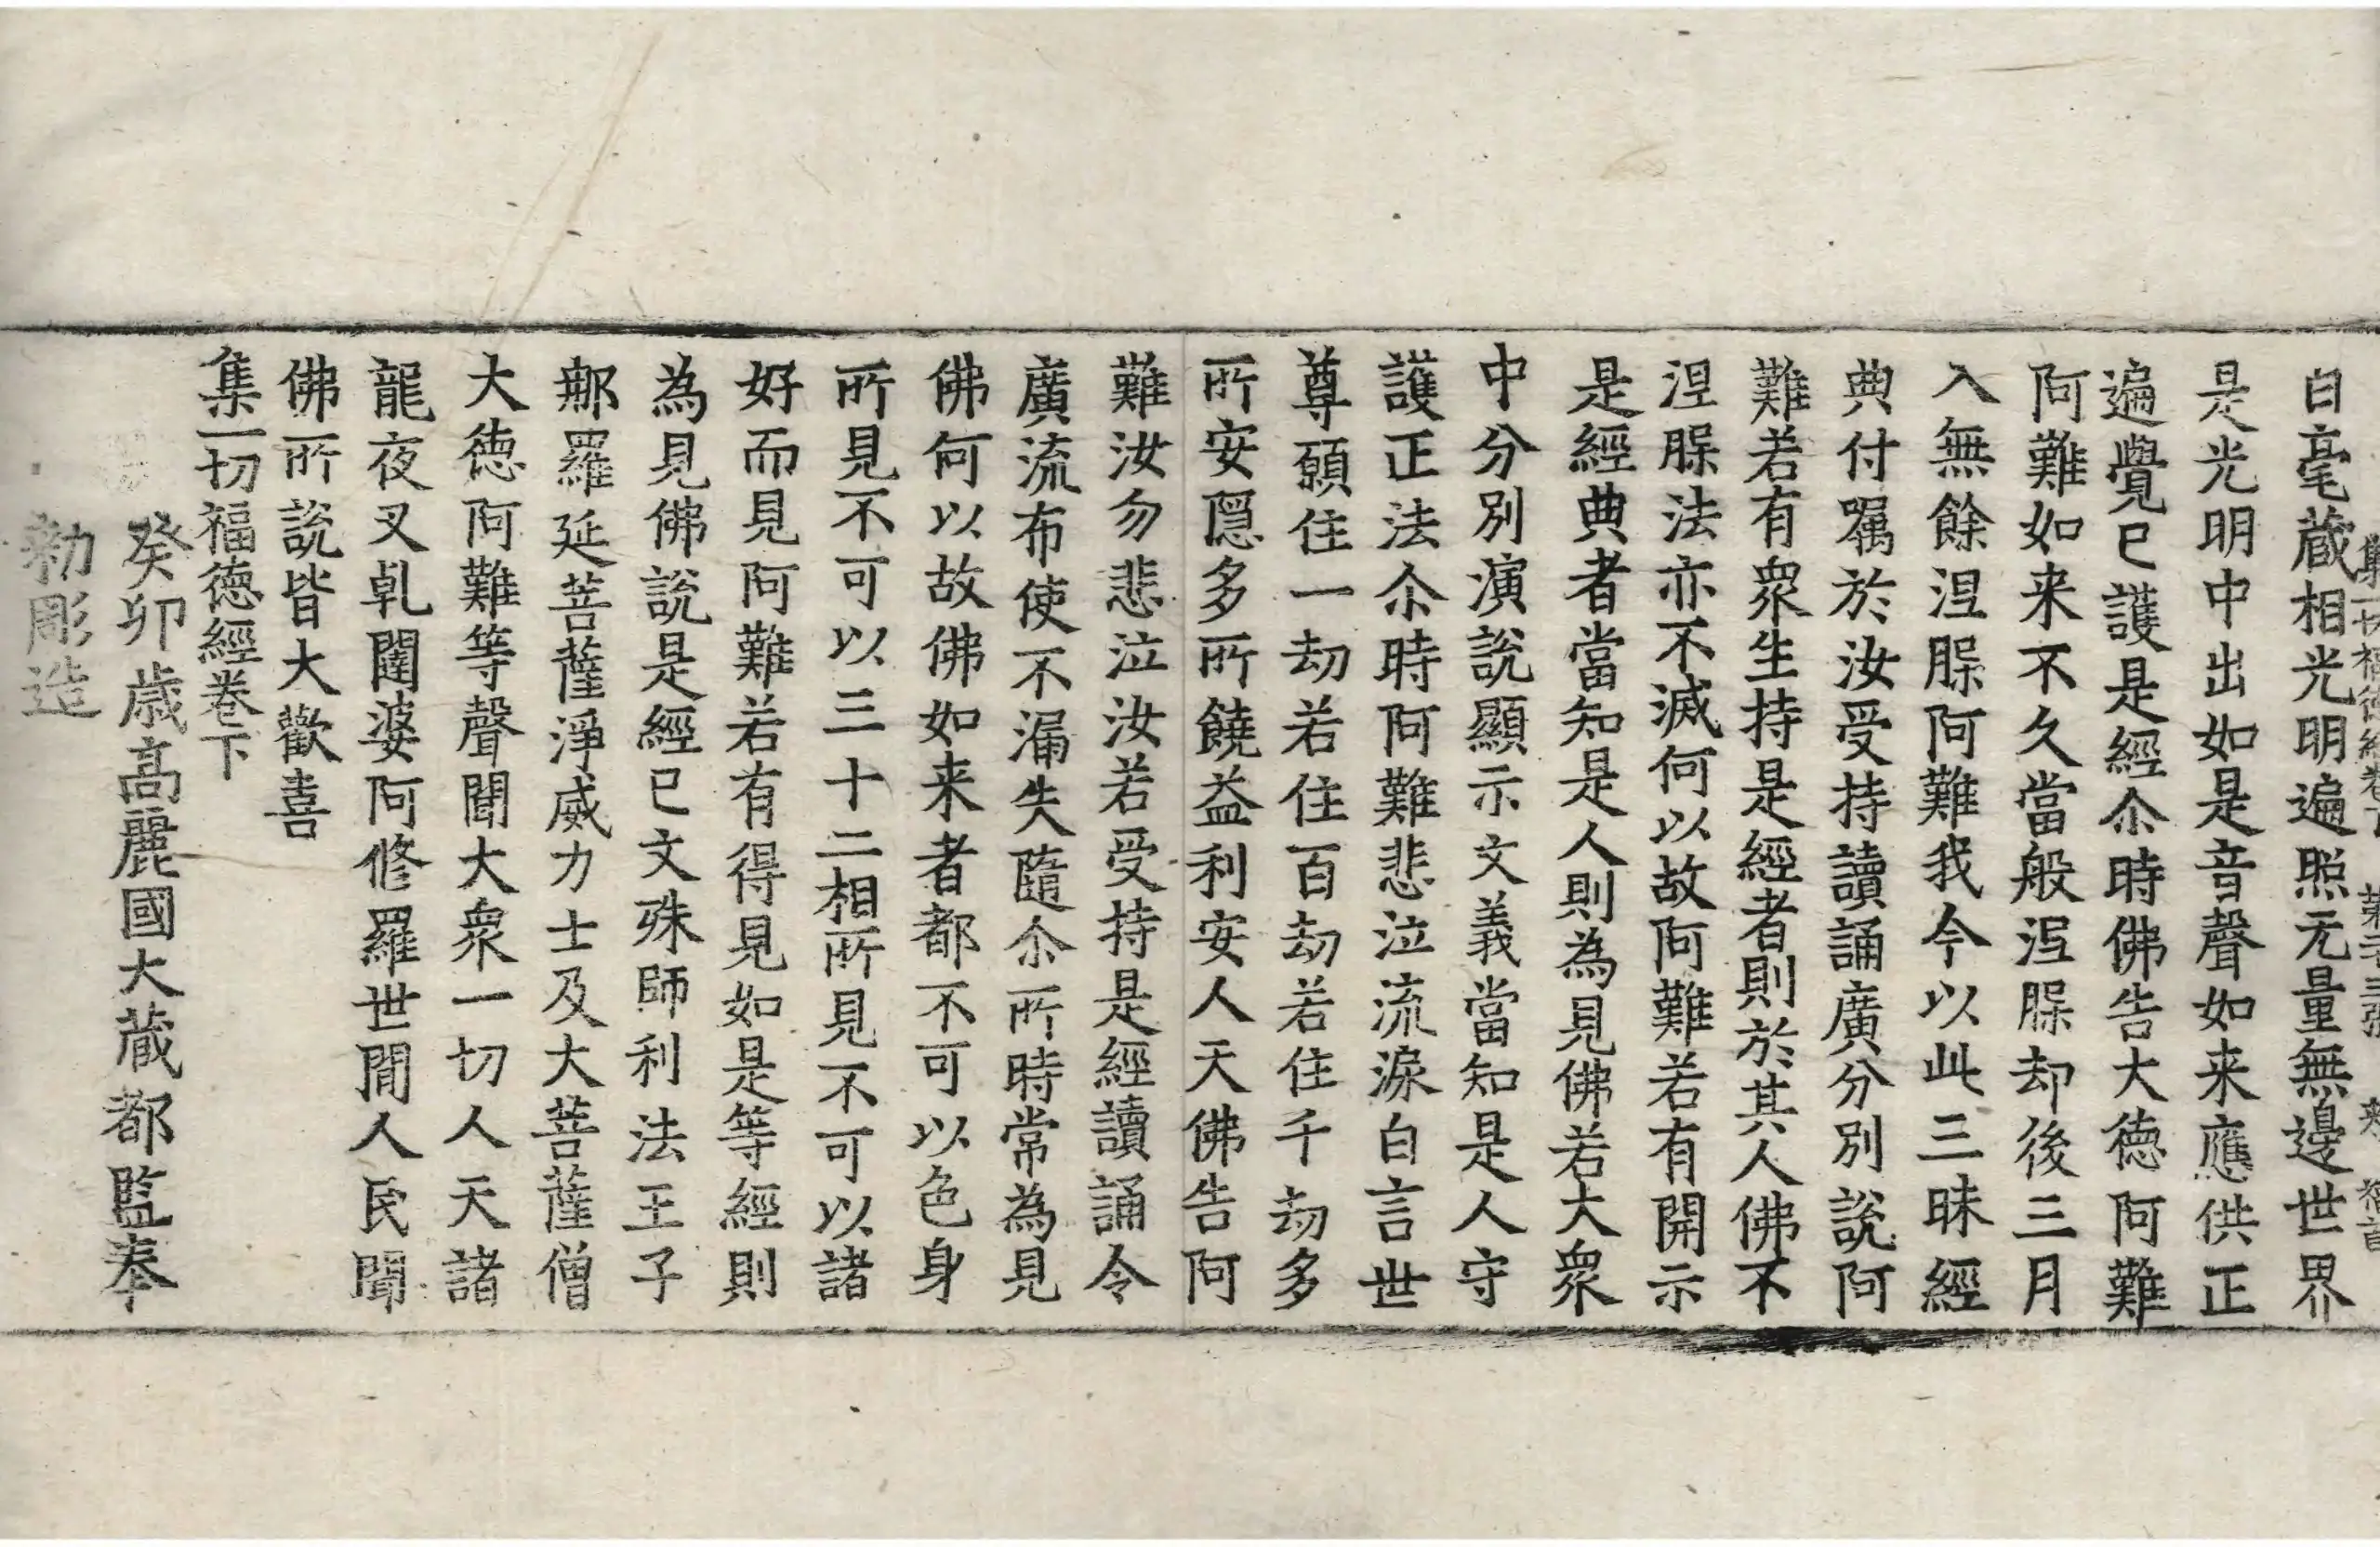 集一切福德經卷下 第二十三張
白毫蔵相光明遍照无量無邊世界
是光明中出如是音聲如来應供正
遍覺已護是經尒時佛告大德阿難
阿難如来不久當般涅槃却後三月
入無餘涅槃阿難我今以此三昧經
典付嘱於汝受持讀誦廣分別說阿
難若有衆生持是經者則於其人佛不
涅槃法亦不滅何以故阿難若有開示
是經典者當知是人則為見佛若大衆
中分別演說顯示文義當知是人守
護正法尒時阿難悲泣流淚白言世
尊願住一劫若住百劫若住千劫多
所安隱多所饒益利安人天佛告阿
難汝勿悲泣汝若受持是經讀誦令
廣流布使不漏失隨尒所時常為見
佛何以故佛如来者都不可以色身
所見不可以三十二相所見不可以諸
好而見阿難若有得見如是等經則
為見佛說是經已文殊師利法王子
那羅延菩薩淨威力士及大菩薩僧
大德阿難等聲聞大衆一切人天諸
龍夜叉乹闥婆阿修羅世間人民聞
佛所說皆大歡喜
集一切福德經卷下
癸卯歳高麗國大蔵都監奉
勑彫造